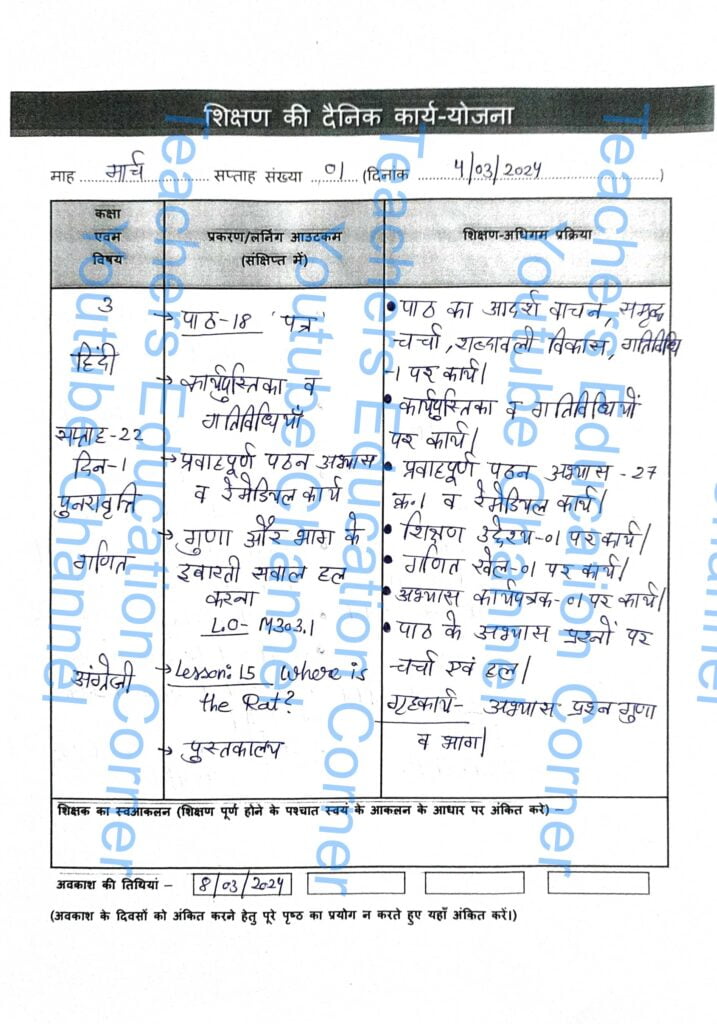 शिक्षण की दैनिक कार्य-योजना
माह मार्च सप्ताह संख्या 01 (दिनांक 4/03/2024)
कक्षा
एवम
विषय
प्रकरण/लर्निंग आउटकम
(संक्षिप्त में)
शिक्षण-अधिगम प्रक्रिया
3
हिंदी
सप्ताह-22
दिन-1
पुनरावृत्ति
गणित
अंग्रेजी
→ पाठ-18 'पत्र'
→ कार्यपुस्तिका व
गतिविधियाँ
→ प्रवाहपूर्ण पठन अभ्यास
व रेमेडियल कार्य
→ गुणा और भाग के
इबारती सवाल हल
करना
L.O- M303.1
→ Lesson: 15 Where is
the Rat?
→ पुस्तकालय
• पाठ का आदर्श वाचन, समृद्ध
चर्चा, शब्दावली विकास, गतिविधि
-1 पर कार्य|
• कार्यपुस्तिका व गतिविधियों
पर कार्य|
• प्रवाहपूर्ण पठन अभ्यास -27
क्र.1 व रेमेडियल कार्य|
• शिक्षण उद्देश्य-01 पर कार्य|
• गणित खेल-01 पर कार्य|
• अभ्यास कार्यपत्रक-01 पर कार्य|
• पाठ के अभ्यास प्रश्नों पर
चर्चा एवं हल|
गृहकार्य- अभ्यास प्रश्न गुणा
व भाग|
शिक्षक का स्वआकलन (शिक्षण पूर्ण होने के पश्चात स्वयं के आकलन के आधार पर अंकित करे) –
अवकाश की तिथियां – 8/03/2024
(अवकाश के दिवसों को अंकित करने हेतु पूरे पृष्ठ का प्रयोग न करते हुए यहाँ अंकित करें।)
Teachers Education Corner
Youtube Channel
Teachers Education Corner
Youtube Channel
Teachers Education Corner
Youtube Channel